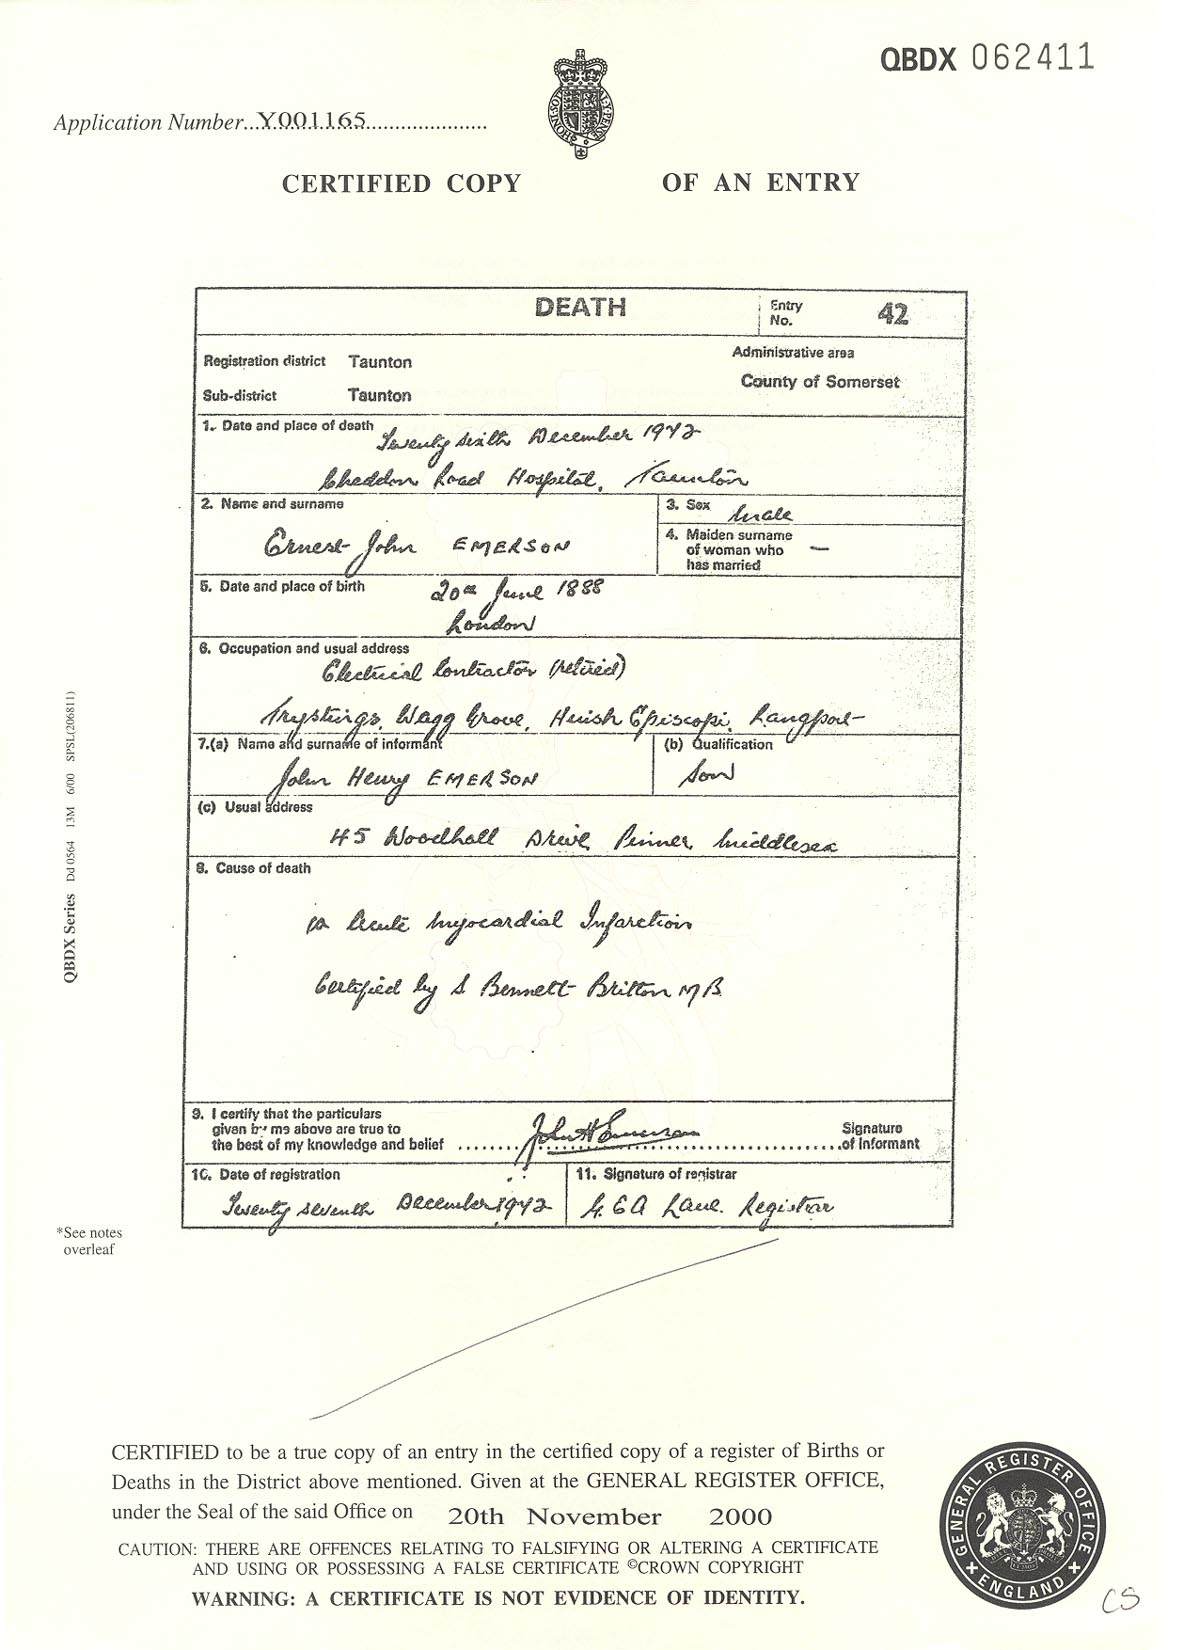 QBDX 062411
Application Number...Y001165
HONI SOIT QUI MAL Y PENSE
CERTIFIED COPY OF AN ENTRY
DEATH Entry No. 42
Registration district Taunton
Administrative area
County of Somerset
Sub-district Taunton
1. Date and place of death Twenty sixth December 1972
Cheddon Road Hospital, Taunton
2. Name and surname
Ernest John EMERSON
3. Sex Male
4. Maiden surname
of woman who —
has married
5. Date and place of birth 20th June 1888
London
6. Occupation and usual address
Electrical Contractor (retired)
Trystings, Wagg Grove, Huish Episcopi, Langport
7.(a) Name and surname of informant
John Henry EMERSON
(b) Qualification
Son
(c) Usual address
45 Woodhall Drive, Pinner, Middlesex
8. Cause of death
1a Acute Myocardial Infarction
Certified by S Bennett Britton MB
9. I certify that the particulars
given by me above are true to
the best of my knowledge and belief John H Emerson
Signature
of informant
10. Date of registration
Twenty seventh December 1972
11. Signature of registrar
G. E A Lane. Registrar
QBDX Series Dd 0564 13M 6/00 SPSL(206811)
*See notes
overleaf
CERTIFIED to be a true copy of an entry in the certified copy of a register of Births or
Deaths in the District above mentioned. Given at the GENERAL REGISTER OFFICE,
under the Seal of the said Office on 20th November 2000
CAUTION: THERE ARE OFFENCES RELATING TO FALSIFYING OR ALTERING A CERTIFICATE
AND USING OR POSSESSING A FALSE CERTIFICATE ©CROWN COPYRIGHT
WARNING: A CERTIFICATE IS NOT EVIDENCE OF IDENTITY.
GENERAL REGISTER OFFICE
ENGLAND
CS